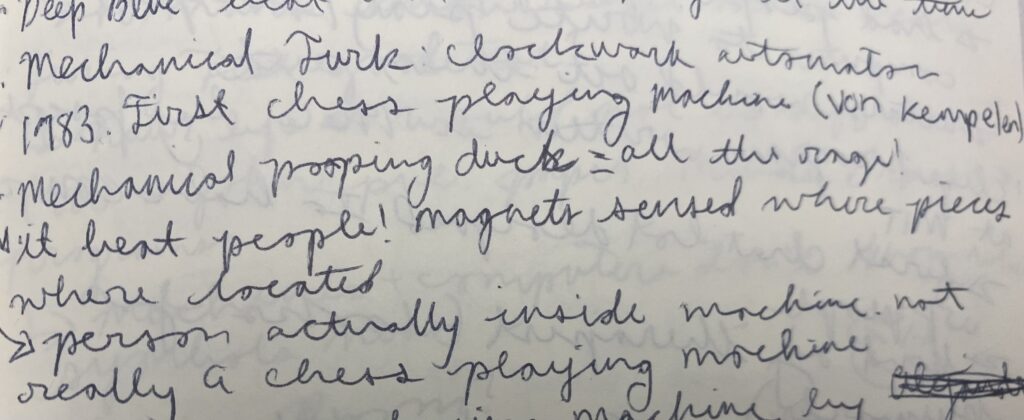 Deep Blue
Mechanical Turk: clockwork automaton
1783. First chess playing machine (von Kempelen)
Mechanical pooping duck = all the rage!
it beat people! magnets sensed where pieces
where located
→ person actually inside machine. not
really a chess playing machine
machine by